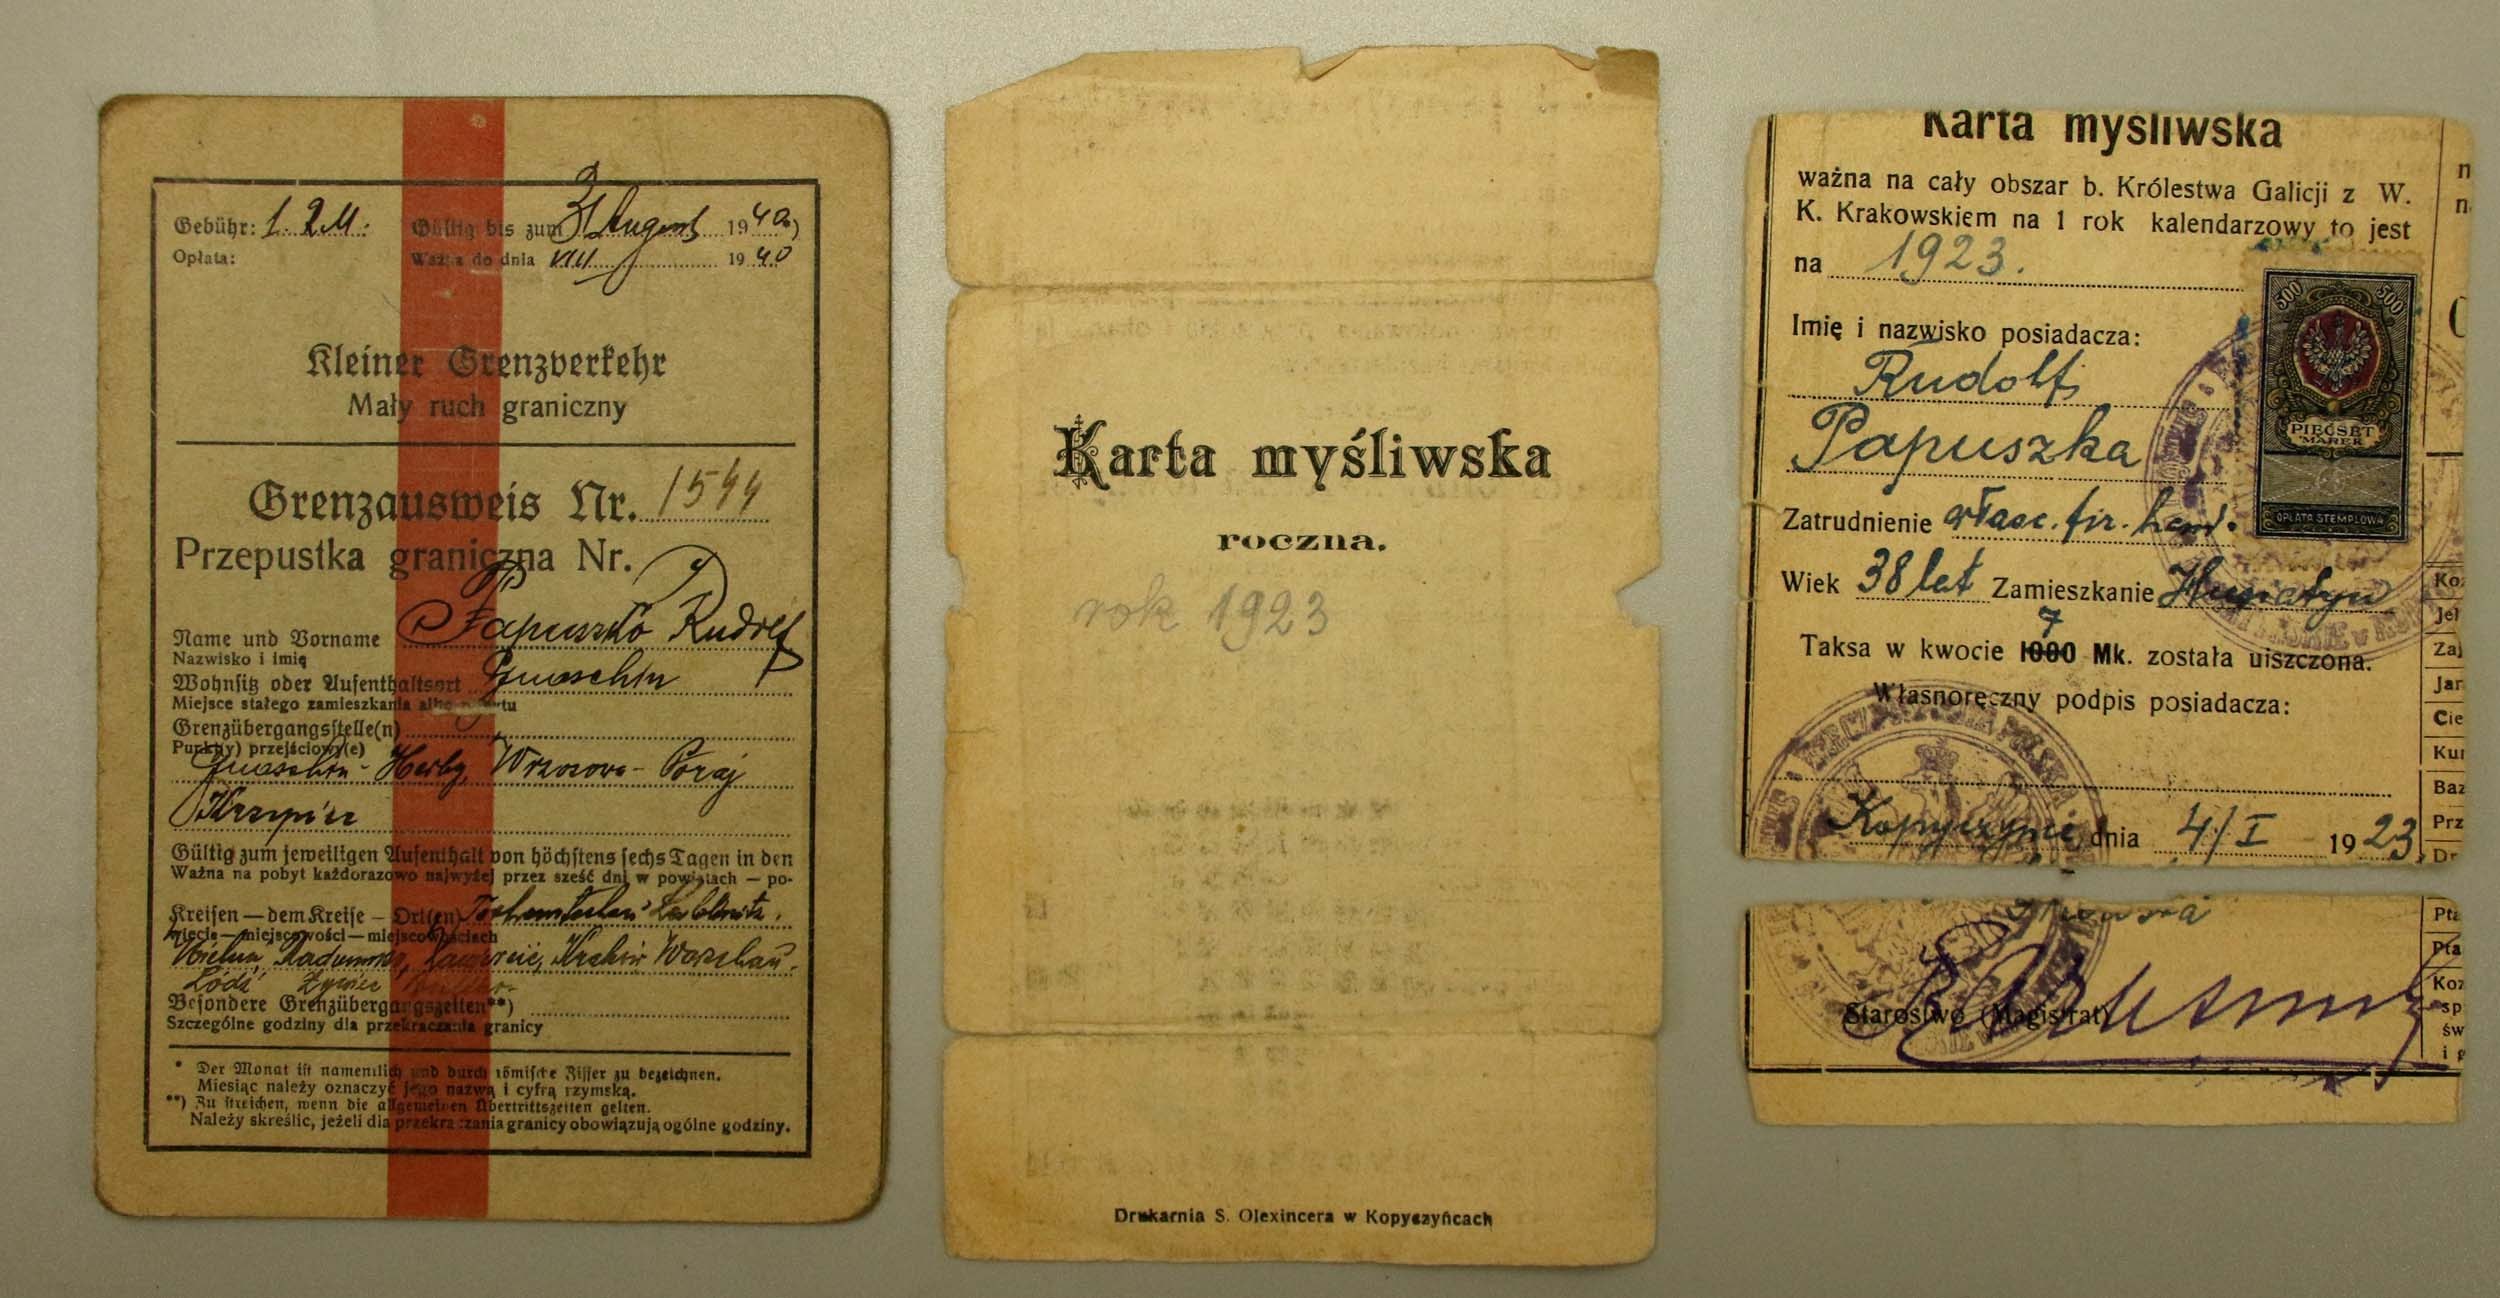 Gebühr: 1. RM. Gültig bis zum 31 August 1940*)
Opłata: Ważna do dnia VIII 1940
Kleiner Grenzverkehr
Mały ruch graniczny
Grenzausweis Nr. 1544
Przepustka graniczna Nr.
Name und Vorname Papuszka Rudolf
Nazwisko i imię
Wohnsitz oder Aufenthaltsort
Miejsce stałego zamieszkania albo pobytu
Grenzübergangsstelle(n)
Punkt(y) przejściowy(e)
Herby, Wrzosowa - Poraj
Krzepice
Gültig zum jeweiligen Aufenthalt von höchstens sechs Tagen in den
Ważna na pobyt każdorazowo najwyżej przez sześć dni w powiatach — po-
Kreisen — dem Kreise — Ort(en) Lublinitz,
wiecie — miejscowości — miejscowościach
Wieluń, Radomsko, Zawiercie, Kraków Warschau.
Łódź Żywiec
Besondere Grenzübergangszeiten**)
Szczególne godziny dla przekraczania granicy
* Der Monat ist namentlich und durch römische Ziffer zu bezeichnen.
Miesiąc należy oznaczyć jego nazwą i cyfrą rzymską.
**) Zu streichen, wenn die allgemeinen Übertrittszeiten gelten.
Należy skreślić, jeżeli dla przekraczania granicy obowiązują ogólne godziny.
Karta myśliwska
roczna.
rok 1923
Drukarnia S. Olexincera w Kopyczyńcach
Karta myśliwska
ważna na cały obszar b. Królestwa Galicji z W.
K. Krakowskiem na 1 rok kalendarzowy to jest
na 1923.
Imię i nazwisko posiadacza:
Rudolf
Papuszka
Zatrudnienie właśc. fir. hand.
Wiek 38 let Zamieszkanie Husiatyn
7
Taksa w kwocie 1000 Mk. została uiszczona.
Własnoręczny podpis posiadacza:
Kopyczyńce dnia 4/I 1923
Starostwo (Magistrat)
500 500
PIĘĆSET
MAREK
OPŁATA STEMPLOWA
Koz
Jel
Zaj
Jar
Cie
Kur
Baz
Prz
Dr
Pta
Pta
Koz
sp
św
i g